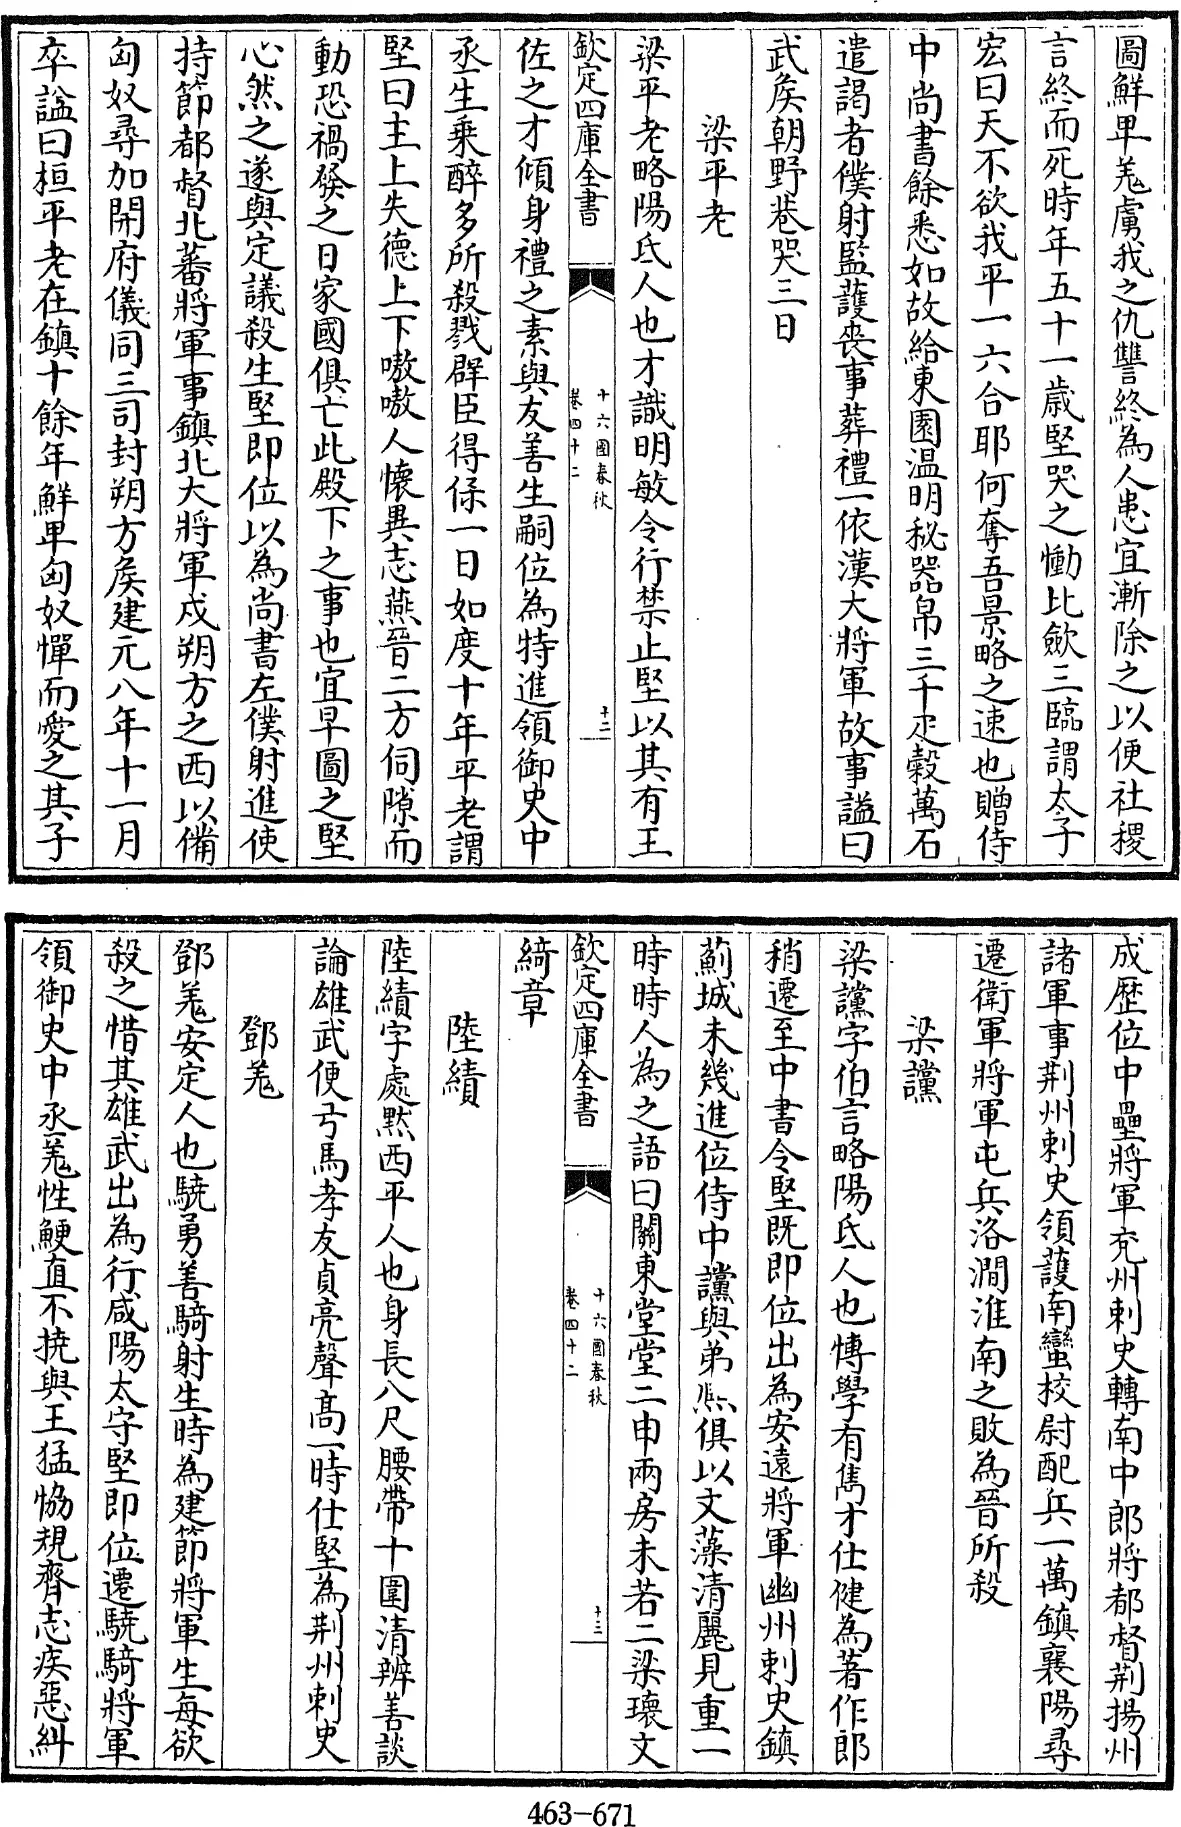 圖鮮卑羗虜我之仇讐終為人患宜漸除之以便社稷
言終而死時年五十一歲堅哭之慟比歛三臨謂太子
宏曰天不欲我平一六合耶何奪吾景略之速也贈侍
中尚書餘悉如故給東園温明秘器帛三千疋穀萬石
遣謁者僕射監護丧事葬禮一依漢大將軍故事諡曰
武矦朝野巷哭三日
梁平老
梁平老略陽氐人也才識明敏令行禁止堅以其有王
欽定四庫全書
十六國春秋
卷四十二
十二
佐之才傾身禮之素與友善生嗣位為特進領御史中
丞生乗醉多所殺戮羣臣得保一日如度十年平老謂
堅曰主上失德上下嗷嗷人懷異志燕晉二方伺隙而
動恐禍發之日家國俱亡此殿下之事也宜早圖之堅
心然之遂與定議殺生堅即位以為尚書左僕射進使
持節都督北蕃將軍事鎮北大將軍戍朔方之西以備
匈奴尋加開府儀同三司封朔方矦建元八年十一月
卒諡曰桓平老在鎮十餘年鮮卑匈奴憚而愛之其子
成歷位中壘將軍兖州刺史轉南中郎將都督荆揚州
諸軍事荆州刺史領護南蠻校尉配兵一萬鎮襄陽尋
遷衛軍將軍屯兵洛澗淮南之敗為晉所殺
梁讜
梁讜字伯言略陽氐人也博學有雋才仕健為著作郎
稍遷至中書令堅既即位出為安遠將軍幽州刺史鎮
薊城未幾進位侍中讜與弟熈俱以文藻清麗見重一
時時人為之語曰關東堂堂二申兩房未若二梁瓌文
欽定四庫全書
十六國春秋
卷四十二
十三
綺章
陸績
陸績字處黙西平人也身長八尺腰帶十圍清辨善談
論雄武便弓馬孝友貞亮聲髙一時仕堅為荆州刺史
鄧羗
鄧羗安定人也驍勇善騎射生時為建節將軍生每欲
殺之惜其雄武出為行咸陽太守堅即位遷驍騎將軍
領御史中丞羗性鯁直不撓與王猛恊規齊志疾惡糾
463-671